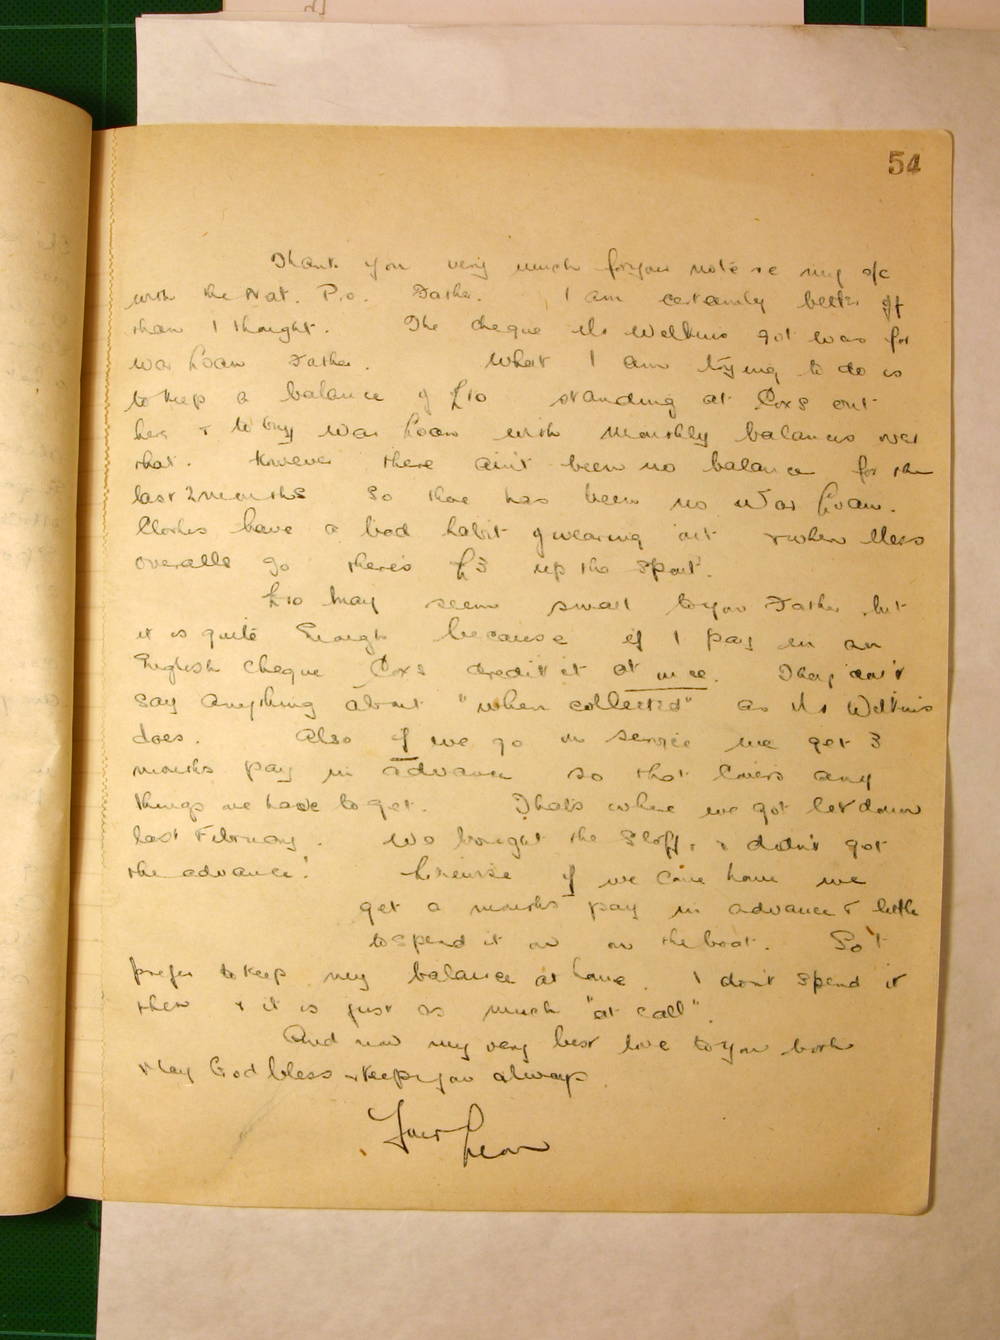 54
Thank you very much for your note re my a/c
with the Nat. P.o. Father. I am certainly better off
than I thought. The cheque Ms Watkins got was for
War Loan Father. What I am trying to do is
to keep a balance of £10 standing at Coxs out
here & to buy War Loan with monthly balances over
that. However there ain't been no balance for the
last 2 months so there has been no War Loan.
Clothes have a bad habit of wearing out & when Mess
overalls go there's £3 up the spout.
£10 may seem small to you Father but
it is quite enough because if I pay in an
English cheque Coxs credit it at once. They don't
say anything about "when collected" as Ms Watkins
does. Also if we go on service we get 3
months pay in advance so that covers any
things we have to get. Thats where we got let down
last February. We bought the stuff, & didn't got
the advance! Likewise if we come home we
get a months pay in advance & little
to spend it on on the boat. So I
prefer to keep my balance at home. I don't spend it
then & it is just as much "at call".
And now my very best love to you both
& May God bless & keep you always.
Your